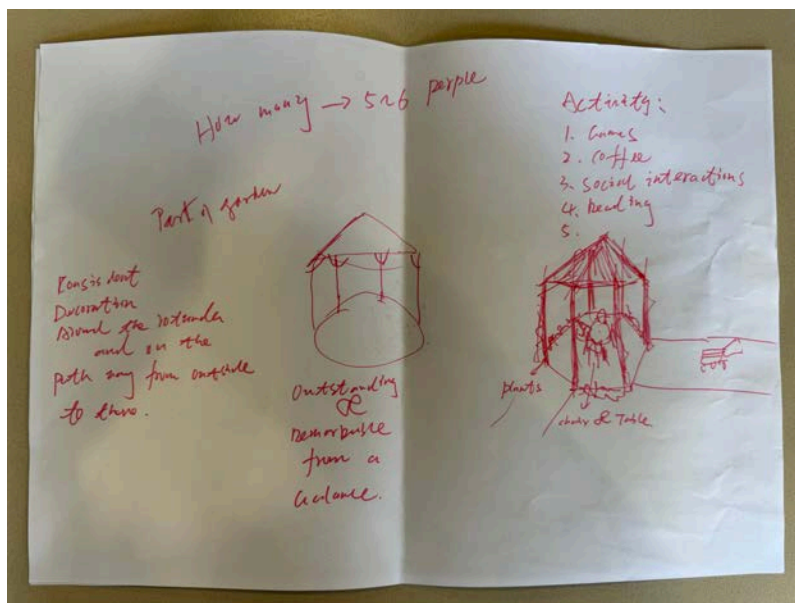 How many → 5~6 people
Part of garden
Consistent
Decoration
Around the rotunda
and on the
path way from outside
to there.
Outstanding
&
Remarkable
from a
Activity:
1. Games
2. Coffee
3. Social interactions
4. Reading
5.
plants
chair & Table